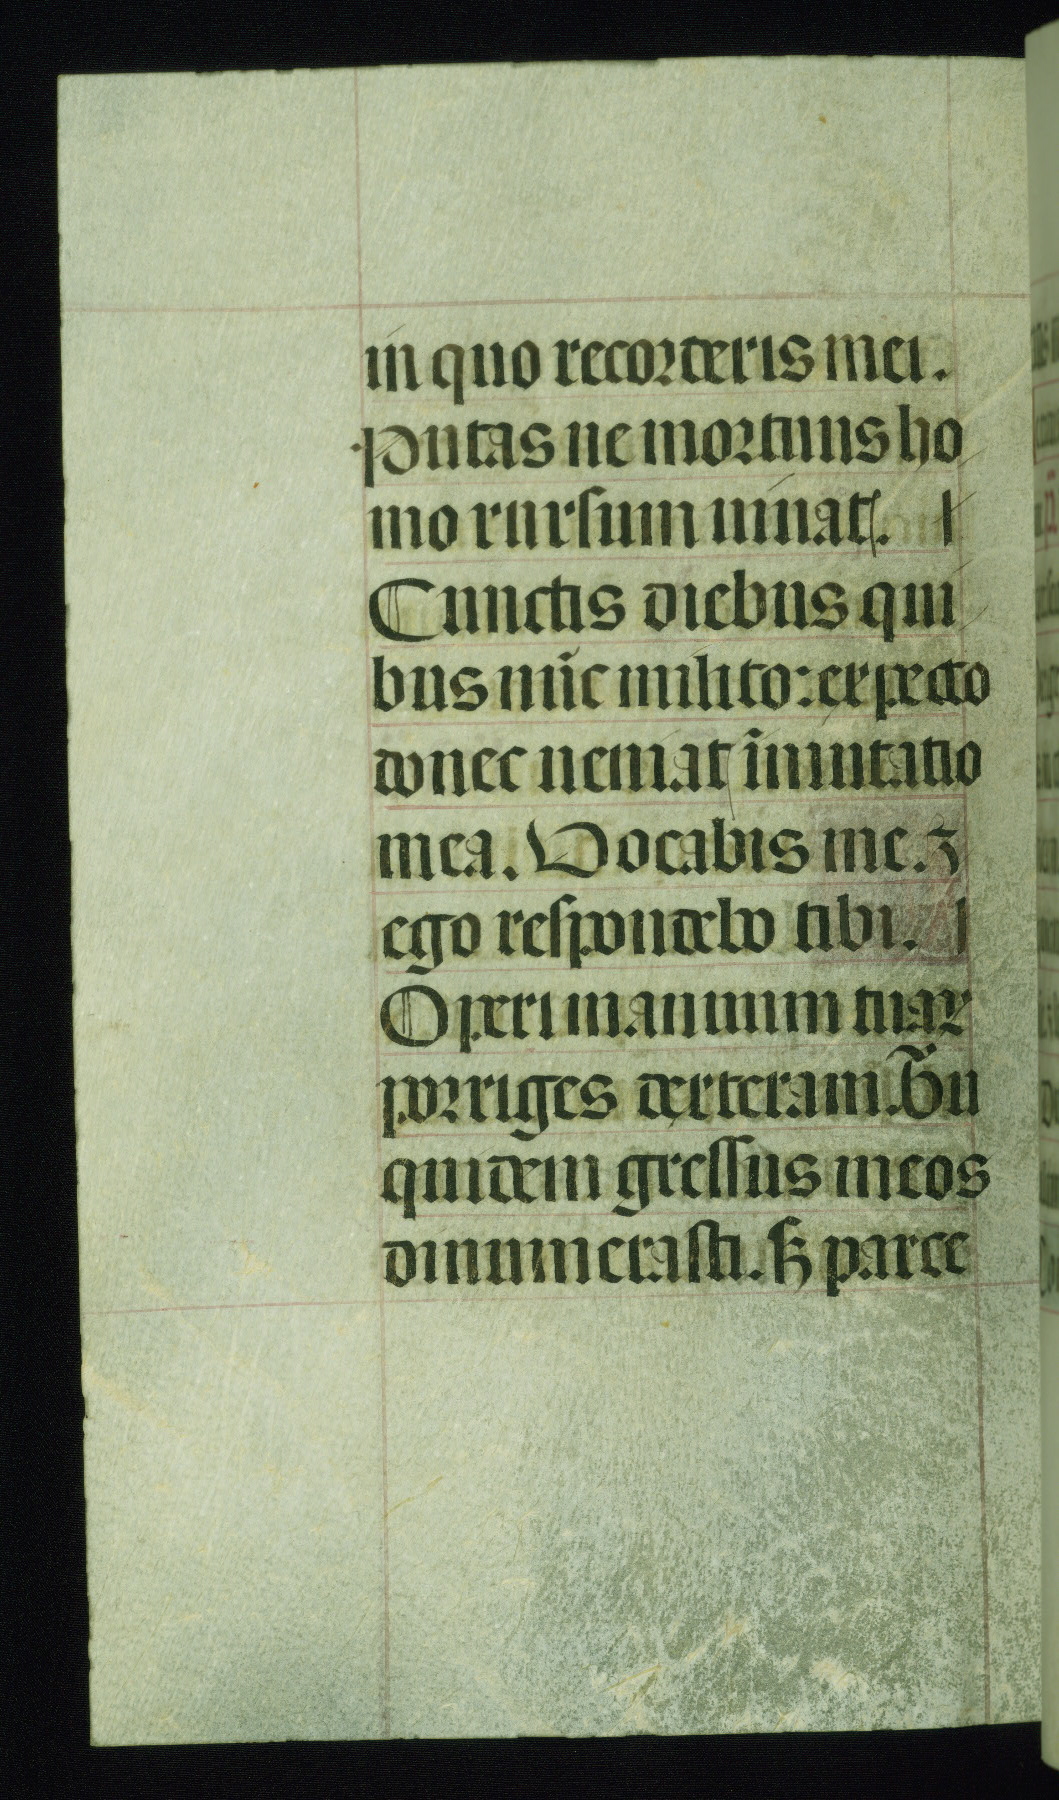 in quo recorderis mei.
Putas ne mortuus ho
mo rursum uiuat.
Cunctis diebus qui
bus nūc milito: expecto
donec ueniat īmutatio
mea. Vocabis me. ⁊
ego respondebo tibi.
Operi manuum tuaꝝ
porriges dexteram. Tu
quidem gressus meos
dinumerasti. sꝫ parce